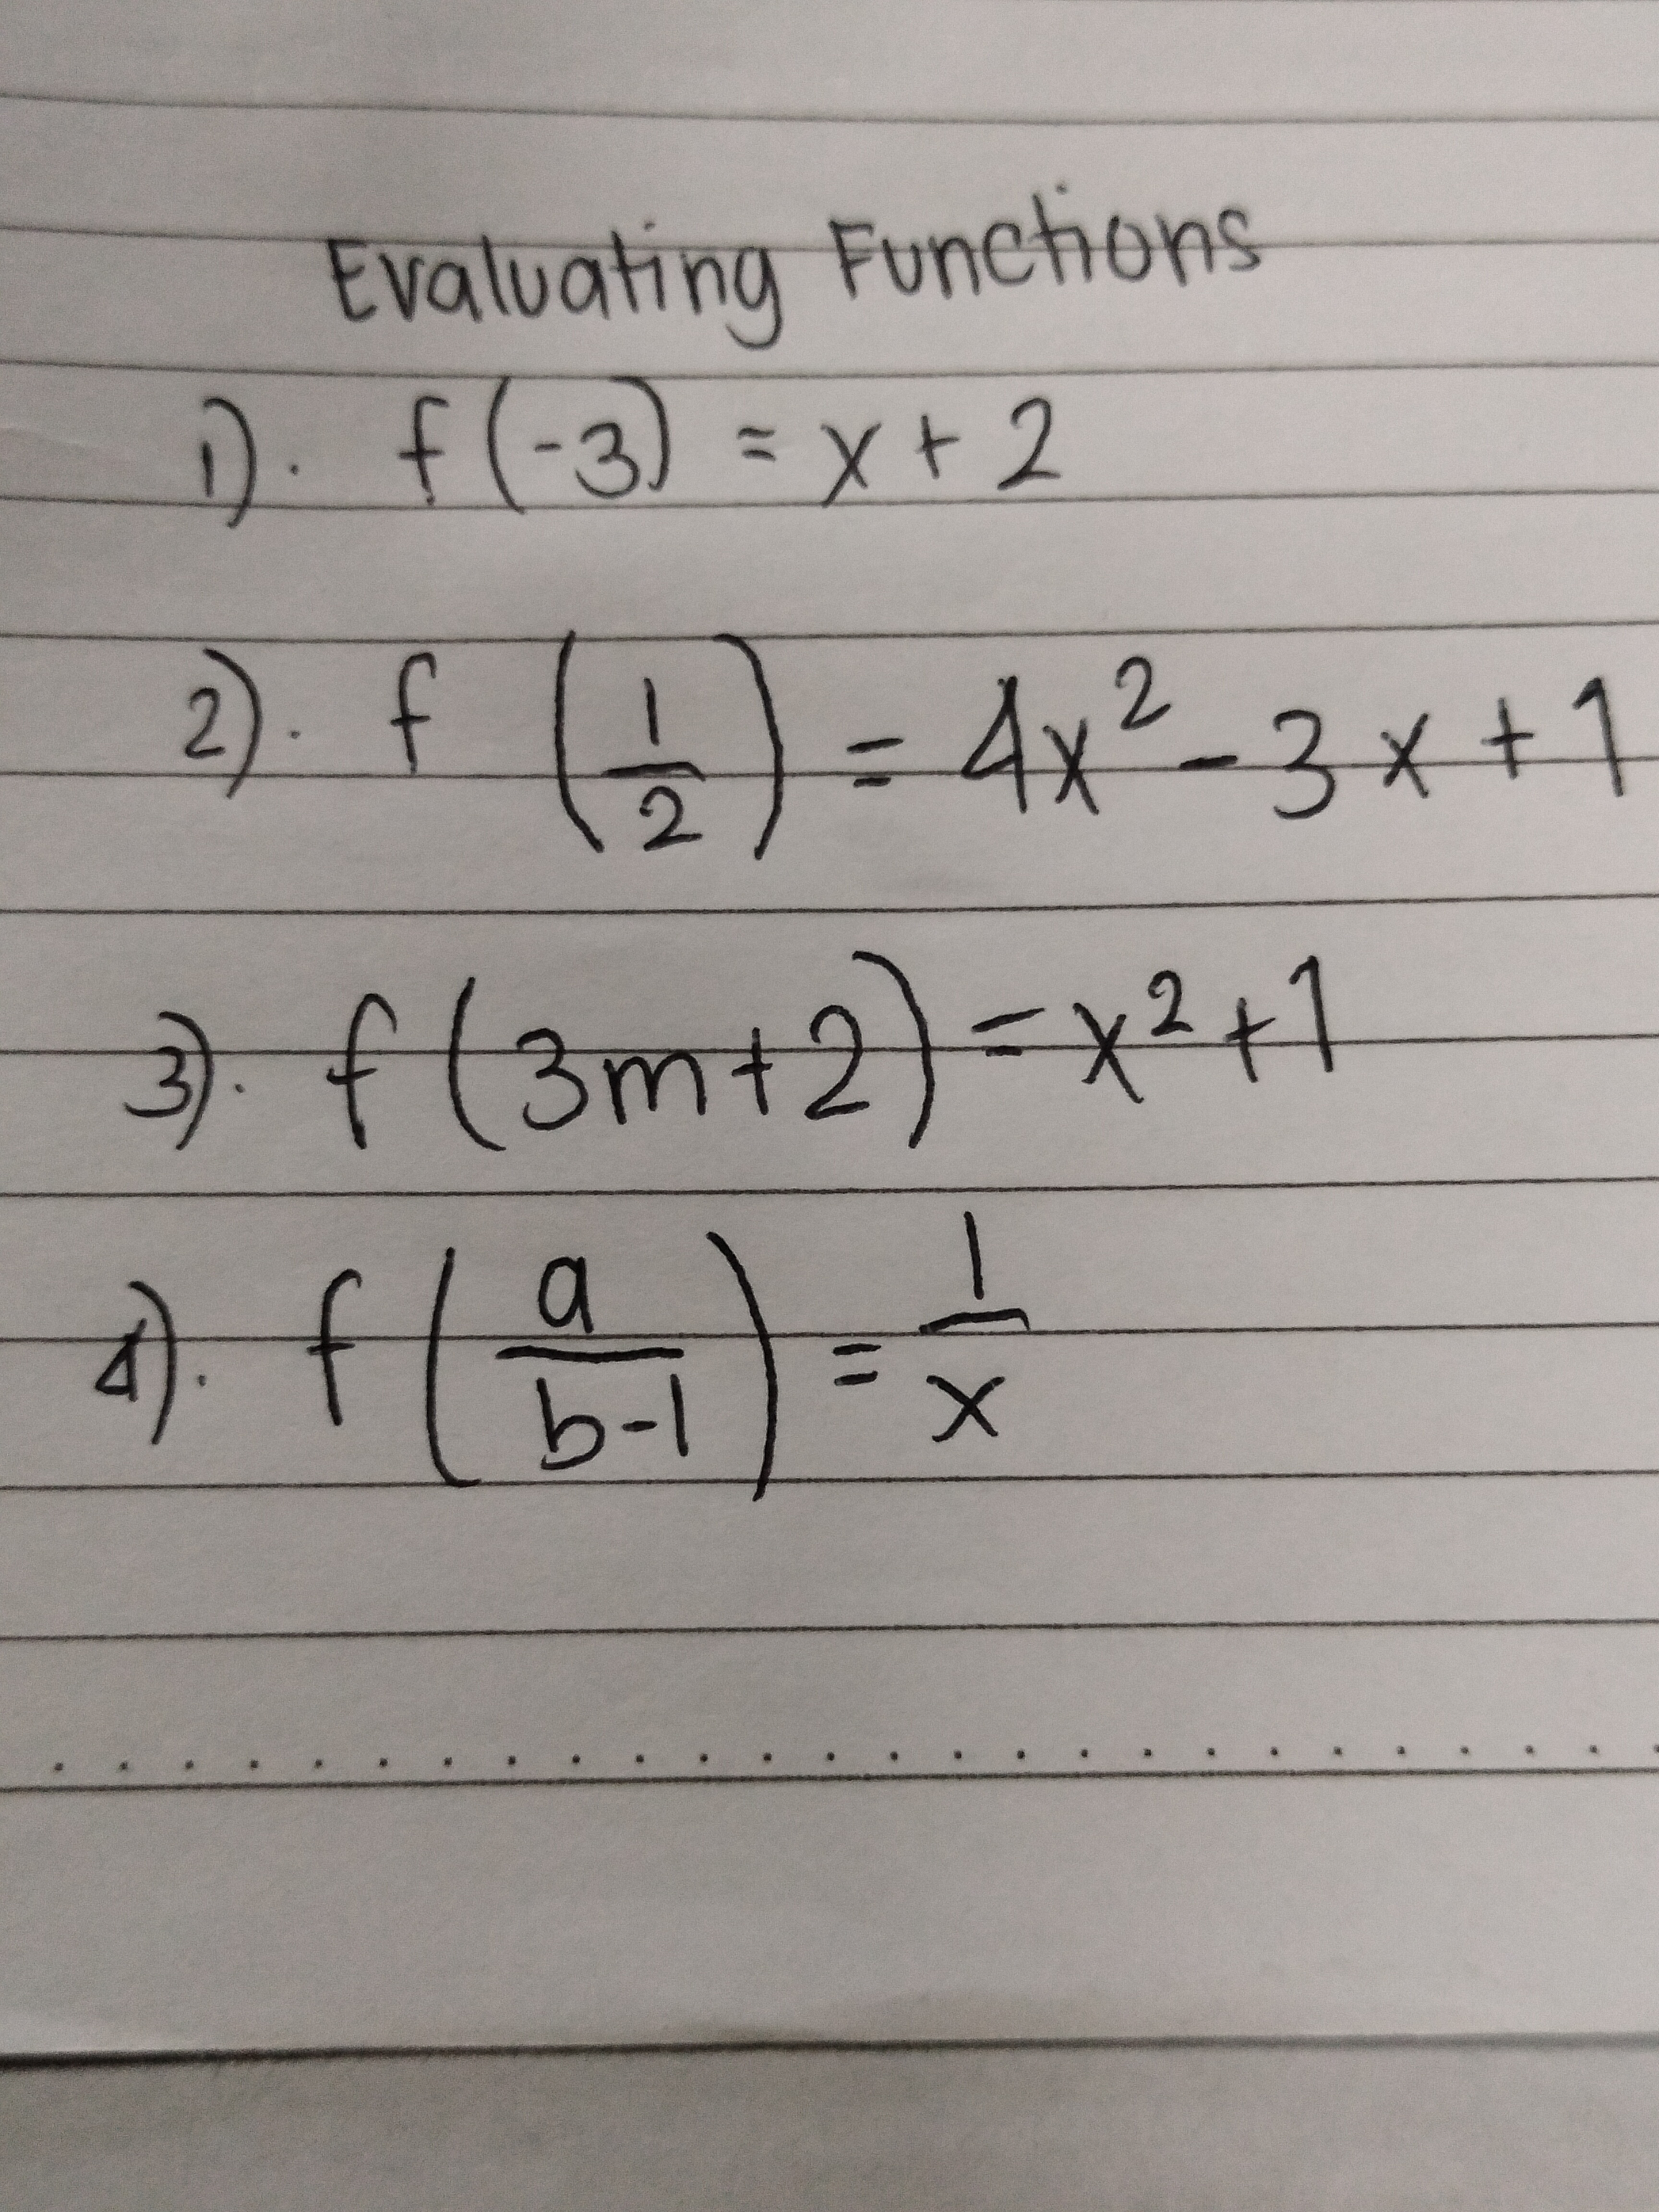 Evaluating Functions
1). f(-3) = x + 2
2). f (1/2) = 4x² - 3x + 1
3). f(3m+2) = x² + 1
4). f(a/b-1) = 1/x